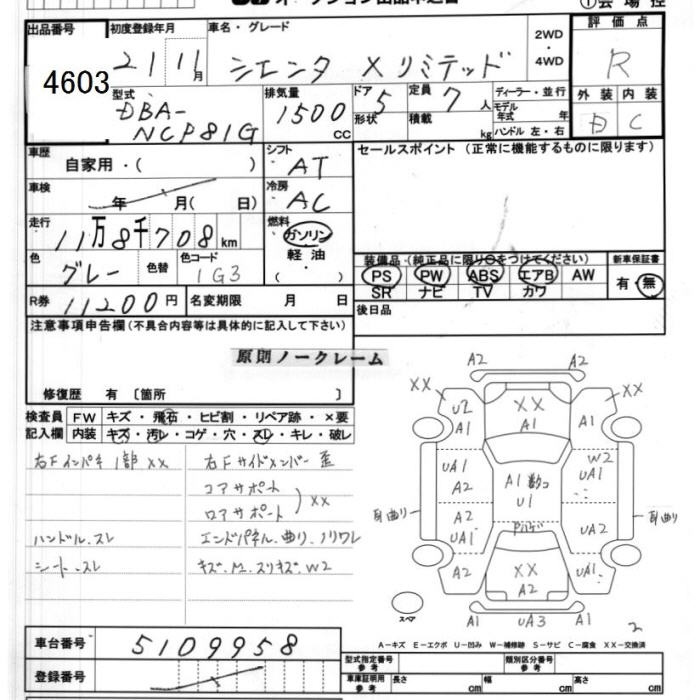 出品番号 4603
初度登録年月 21 11月
車名・グレード シエンタ Xリミテッド
2WD ・ 4WD
評価点 R
外装 内装
D C
型式 DBA-NCP81G
排気量 1500 cc
ドア 5
形状
定員 7人
積載 kg
ディーラー・並行
モデル年式 年
ハンドル 左・右
車歴 自家用・( )
シフト AT
セールスポイント (正常に機能するものに限ります)
車検 年 月( 日)
冷房 AC
走行 11万8千708km
燃料 ガソリン
軽油
( )
色 グレー
色替
色コード 1G3
装備品 (純正品に限り○をつけてください)
PS PW ABS エアB AW
SR ナビ TV カワ
新車保証書
有・無
R券 11200円
名変期限 月 日
後日品
注意事項申告欄 (不具合内容等は具体的に記入して下さい)
原則ノークレーム
修復歴 有 〔箇所 〕
検査員記入欄
FW キズ・飛石・ヒビ割・リペア跡・×要
内装 キズ・汚レ・コゲ・穴・スレ・キレ・破レ
右Fインパネ 1部 XX
右Fサイドメンバー 歪
コアサポート
ロアサポート
XX
ハンドル.スレ
エンドパネル.曲り.ノリワレ
シート.スレ
キズ.M.スリキズ.W2
A2 A2
XX XX
U2 A1
XX A1
A1
UA1 A2
A1 U1
W2 UA1
耳曲り
耳曲り
A2 UA1
UA2
A2
XX A2
UA1
スペア
A1 UA3 A1
2
A-キズ E-エクボ U-凹み W-補修跡 S-サビ C-腐食 XX-交換済
車台番号 5109958
登録番号
型式指定番号 参考
類別区分番号 参考
車庫証明用 参考
長さ cm 幅 cm 高さ cm